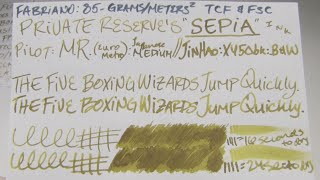 FABRIANO: 85-GRAMS/METERS² TCF & FSC
PRIVATE RESERVE'S "SEPIA" INK
PILOT: MR. (Euro Metro) Japanese MEDIUM // JINHAO: X450bk: B&W
THE FIVE BOXING WIZARDS JUMP QUICKLY.
THE FIVE BOXING WIZARDS JUMP QUICKLY.
= 16 seconds to dry
= 24 sec to dry